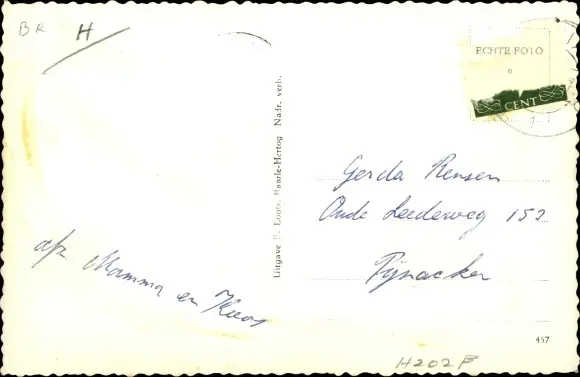 BR H
ECHTE FOTO
CENT
Uitgave F. Loots, Baarle-Hertog Nadr. verb.
Gerda Rensen
Oude Leedeweg 152
Pijnacker
afz Mamma en Koos
457
H202F